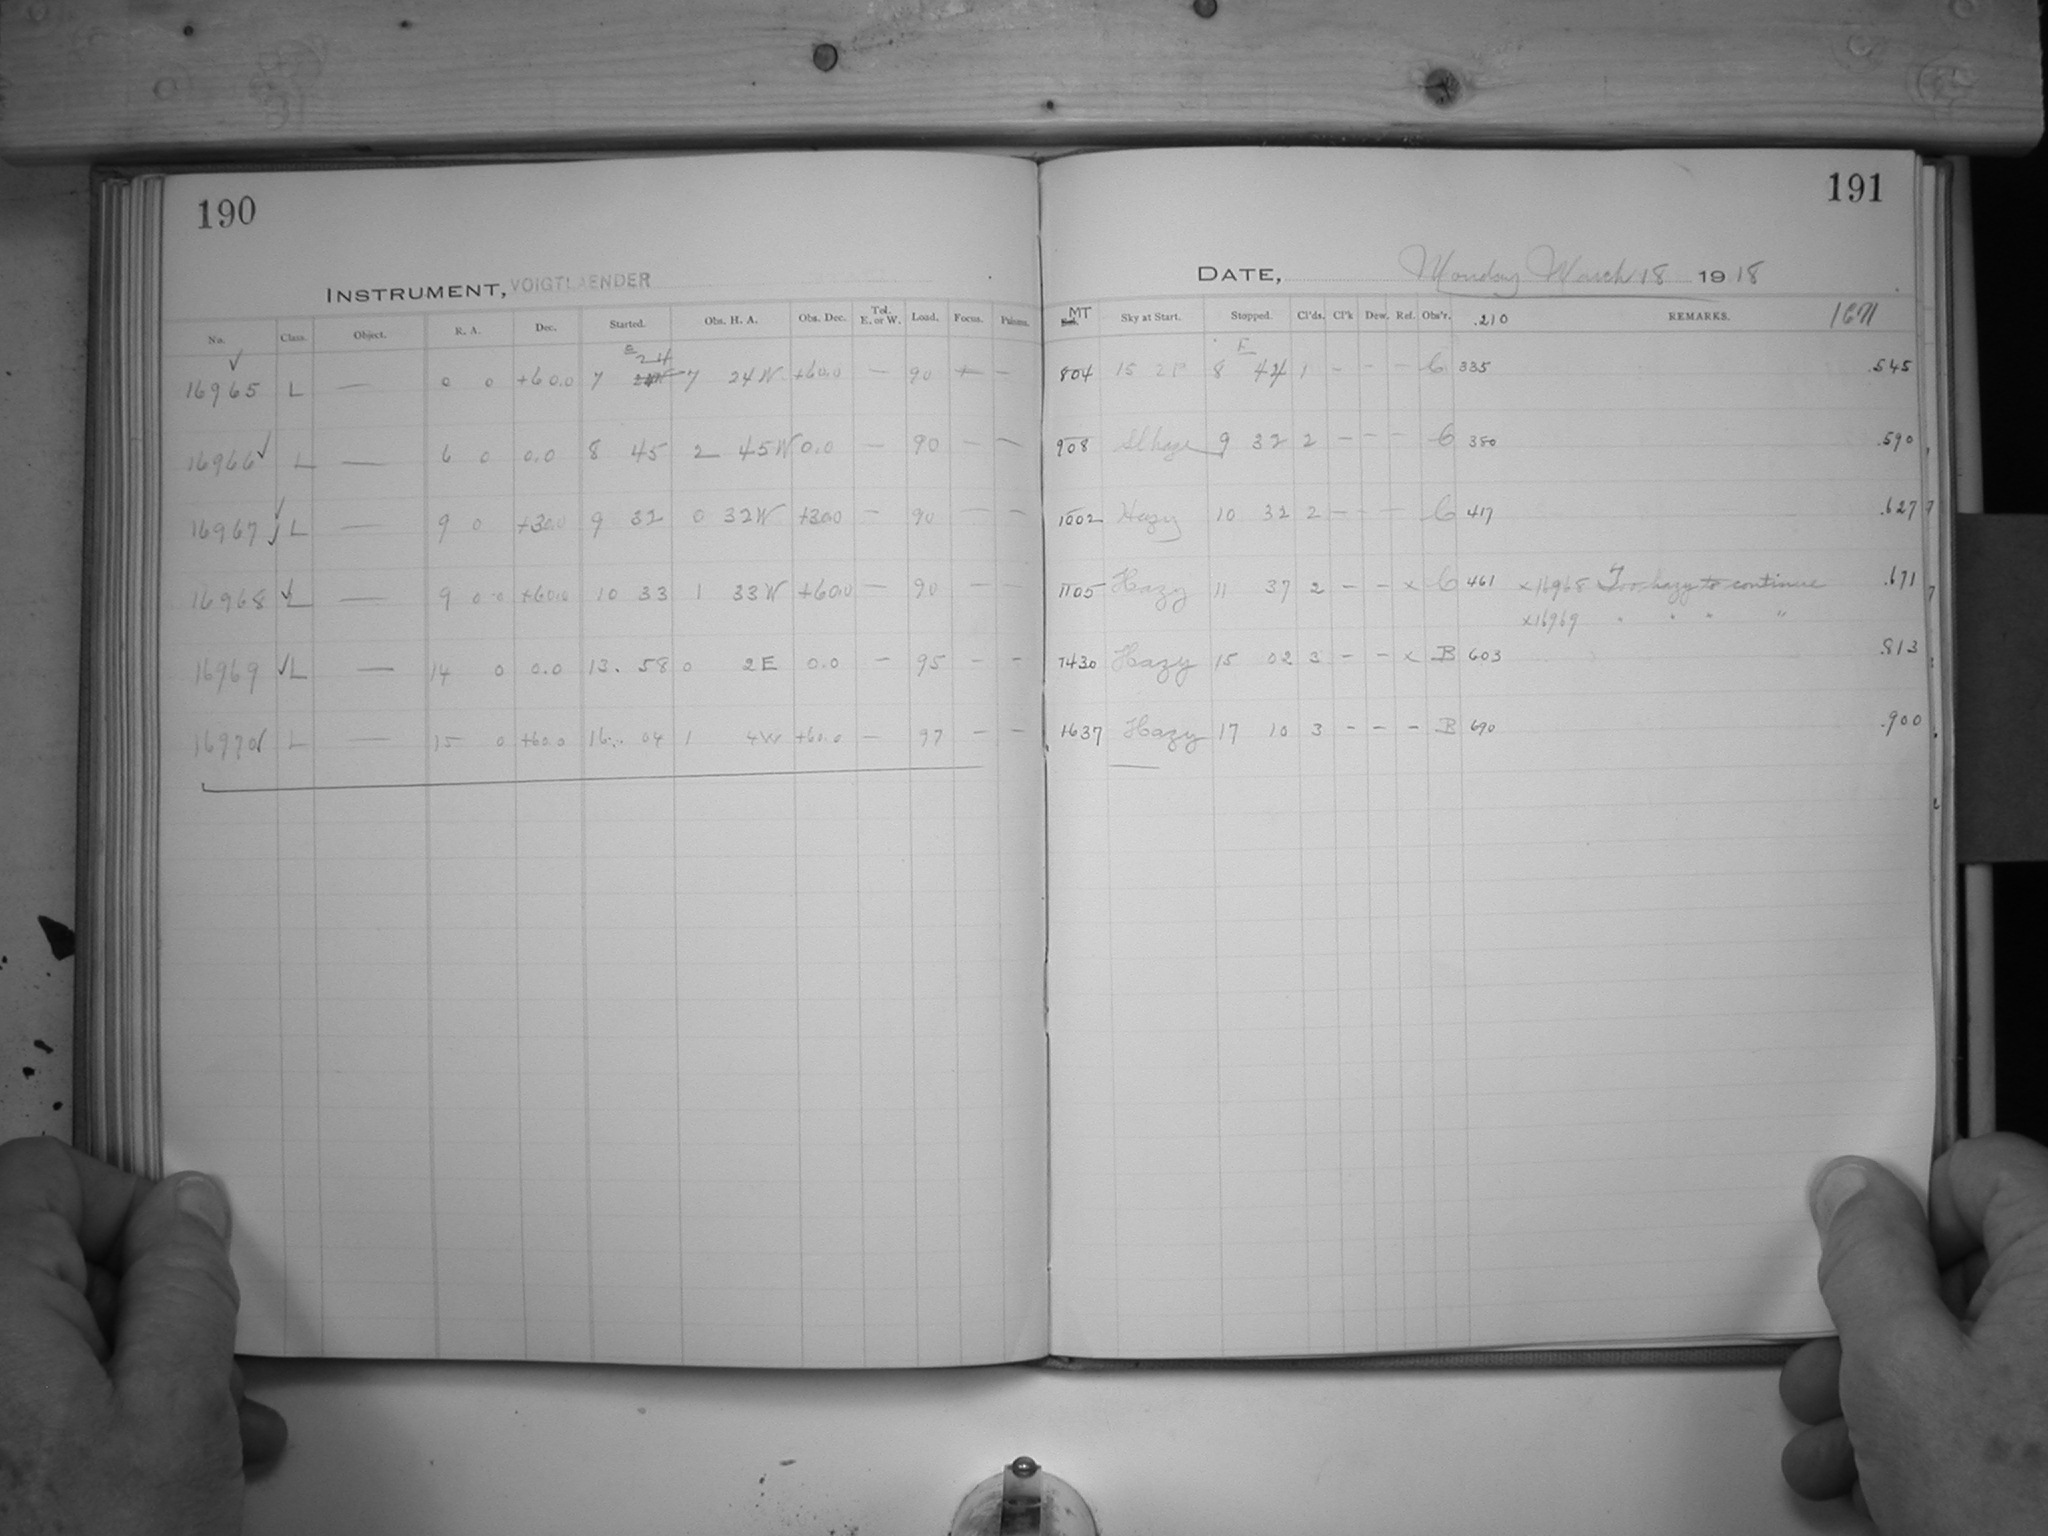 190
INSTRUMENT, VOIGTLAENDER
No. Class. Object. R. A. Dec. Started. Obs. H. A. Obs. Dec. Tel. E. or W. Load. Focus.
E
24
16965 L — 0 0 +60.0 7 7 24W +60.0 — 90 — —
16966 L — 6 0 0.0 8 45 2 45W 0.0 — 90 — —
16967 L — 9 0 +30.0 9 32 0 32W +30.0 — 90 — —
16968 L — 9 0 +60.0 10 33 1 33W +60.0 — 90 — —
16969 L — 14 0 0.0 13. 58 0 2E 0.0 — 95 — —
16970 L — 15 0 +60.0 16. 04 1 4W +60.0 — 97 — —
191
DATE, Monday March 18 1918
MT Sky at Start. Stopped. Cl'ds. Cl'k Dew. Ref. Obs'r. .210 REMARKS. 1671
E
804 15 2P 8 44 1 - - - C 335 .545
908 Sl haze 9 32 2 - - - C 380 .590
1002 Hazy 10 32 2 - - - C 417 .627
1105 Hazy 11 37 2 - - x C 461 x16968 Too hazy to continue .671
x16969 " " " "
1430 Hazy 15 02 3 - - x B 603 .813
1637 Hazy 17 10 3 - - - B 690 .900